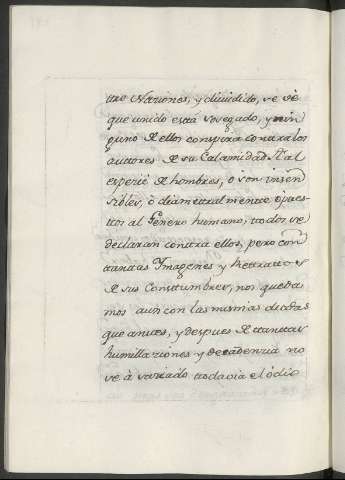 tro Naciones, y dividido, se vé
que unido está sosegado, y nin
guno de ellos conspira contra los
auctores de su Calamidad. Tal
especie de hombres, ó son insen
sibles, ó diametralmente opues
tos al Genero humano, todos se
declaran contra ellos, pero con
tantas Imagenes y Retratos
de sus Constumbres, nos queda
mos aun con las mismas dudas
que antes, y despues de tantas
humillaziones y decadenzia no
se á saziado todavia el ódio